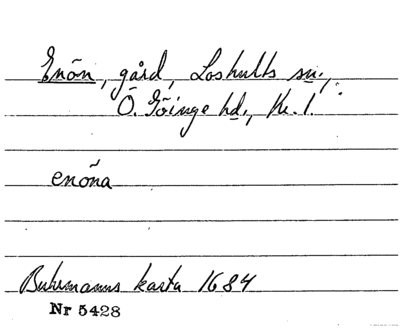 Enön, gård, Loshults sn.,
Ö. Göinge hd., Kr. l.
enöna
Buhrmanns karta 1684
Nr 5428